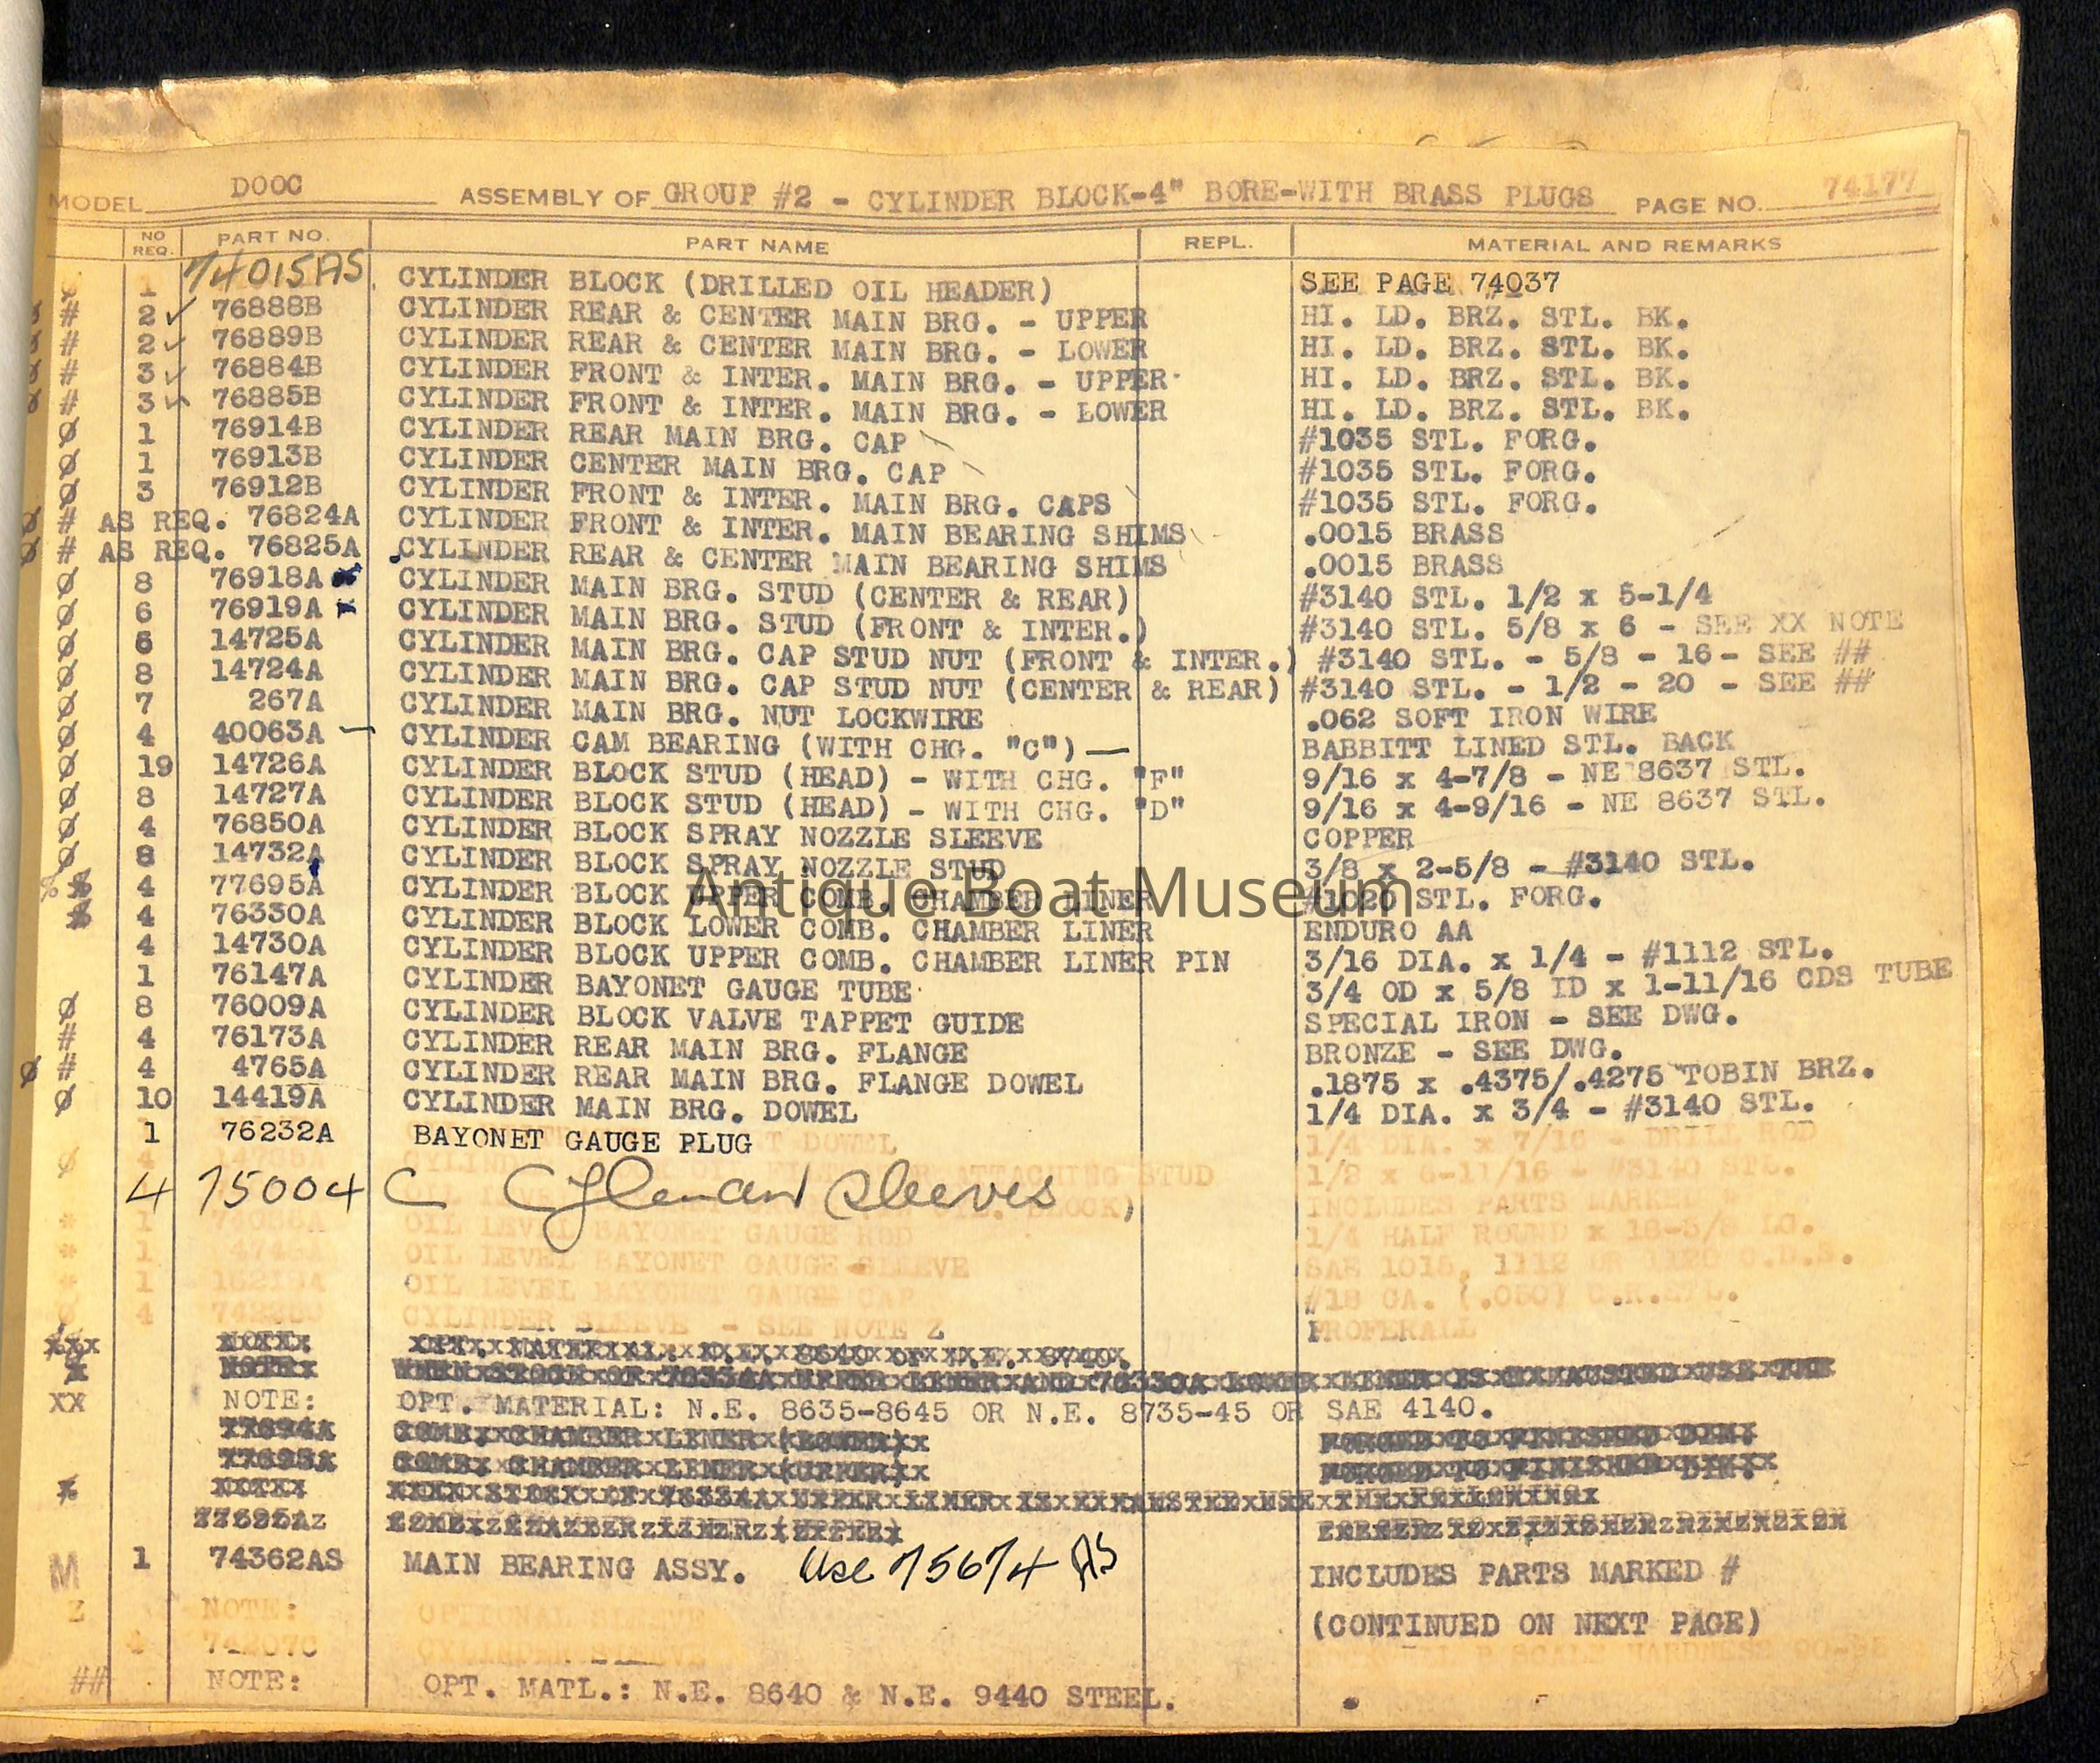 MODEL DOOC ASSEMBLY OF GROUP #2 - CYLINDER BLOCK-4" BORE-WITH BRASS PLUGS PAGE NO. 74177
NO REQ. PART NO. PART NAME REPL. MATERIAL AND REMARKS
1 74015AS CYLINDER BLOCK (DRILLED OIL HEADER) SEE PAGE 74037
Ø # 2 ✓ 76888B CYLINDER REAR & CENTER MAIN BRG. - UPPER HI. LD. BRZ. STL. BK.
Ø # 2 ✓ 76889B CYLINDER REAR & CENTER MAIN BRG. - LOWER HI. LD. BRZ. STL. BK.
Ø # 3 ✓ 76884B CYLINDER FRONT & INTER. MAIN BRG. - UPPER HI. LD. BRZ. STL. BK.
Ø # 3 ✓ 76885B CYLINDER FRONT & INTER. MAIN BRG. - LOWER HI. LD. BRZ. STL. BK.
Ø 1 76914B CYLINDER REAR MAIN BRG. CAP #1035 STL. FORG.
Ø 1 76913B CYLINDER CENTER MAIN BRG. CAP #1035 STL. FORG.
Ø 3 76912B CYLINDER FRONT & INTER. MAIN BRG. CAPS #1035 STL. FORG.
Ø # AS REQ. 76824A CYLINDER FRONT & INTER. MAIN BEARING SHIMS .0015 BRASS
Ø # AS REQ. 76825A CYLINDER REAR & CENTER MAIN BEARING SHIMS .0015 BRASS
Ø 8 76918A CYLINDER MAIN BRG. STUD (CENTER & REAR) #3140 STL. 1/2 x 5-1/4
Ø 6 76919A CYLINDER MAIN BRG. STUD (FRONT & INTER.) #3140 STL. 5/8 x 6 - SEE XX NOTE
Ø 6 14725A CYLINDER MAIN BRG. CAP STUD NUT (FRONT & INTER.) #3140 STL. - 5/8 - 16- SEE ##
Ø 8 14724A CYLINDER MAIN BRG. CAP STUD NUT (CENTER & REAR) #3140 STL. - 1/2 - 20 - SEE ##
Ø 7 267A CYLINDER MAIN BRG. NUT LOCKWIRE .062 SOFT IRON WIRE
Ø 4 40063A — CYLINDER CAM BEARING (WITH CHG. "C") — BABBITT LINED STL. BACK
Ø 19 14726A CYLINDER BLOCK STUD (HEAD) - WITH CHG. "F" 9/16 x 4-7/8 - NE 8637 STL.
Ø 8 14727A CYLINDER BLOCK STUD (HEAD) - WITH CHG. "D" 9/16 x 4-9/16 - NE 8637 STL.
Ø 4 76850A CYLINDER BLOCK SPRAY NOZZLE SLEEVE COPPER
Ø 8 14732A CYLINDER BLOCK SPRAY NOZZLE STUD 3/8 x 2-5/8 - #3140 STL.
4 77695A CYLINDER BLOCK UPPER COMB. CHAMBER LINER #1020 STL. FORG.
Antique Boat Museum
4 76330A CYLINDER BLOCK LOWER COMB. CHAMBER LINER ENDURO AA
4 14730A CYLINDER BLOCK UPPER COMB. CHAMBER LINER PIN 3/16 DIA. x 1/4 - #1112 STL.
1 76147A CYLINDER BAYONET GAUGE TUBE 3/4 OD x 5/8 ID x 1-11/16 CDS TUBE
Ø 8 76009A CYLINDER BLOCK VALVE TAPPET GUIDE SPECIAL IRON - SEE DWG.
# 4 76173A CYLINDER REAR MAIN BRG. FLANGE BRONZE - SEE DWG.
Ø # 4 4765A CYLINDER REAR MAIN BRG. FLANGE DOWEL .1875 x .4375/.4275 TOBIN BRZ.
Ø 10 14419A CYLINDER MAIN BRG. DOWEL 1/4 DIA. x 3/4 - #3140 STL.
1 76232A BAYONET GAUGE PLUG DOWEL 1/4 DIA. x 7/16 - DRILL ROD
Ø 4 ATTACHING STUD 1/2 x 6-11/16 - #3140 STL.
4 75004 C Sleeves INCLUDES PARTS MARKED
1 OIL LEVEL BAYONET GAUGE ROD 1/4 HALF ROUND x 18-5/8 LG.
1 OIL LEVEL BAYONET GAUGE SLEEVE SAE 1015, 1112 OR 1120 C.D.S.
1 OIL LEVEL BAYONET GAUGE CAP #18 GA. (.050) C.R.STL.
4 CYLINDER SLEEVE - SEE NOTE Z PROFERALL
XX NOTE: OPT. MATERIAL: N.E. 8635-8645 OR N.E. 8735-45 OR SAE 4140.
M 1 74362AS MAIN BEARING ASSY. Use 75674 AS INCLUDES PARTS MARKED #
Z NOTE: OPTIONAL SLEEVE (CONTINUED ON NEXT PAGE)
74207C
## NOTE: OPT. MATL.: N.E. 8640 & N.E. 9440 STEEL.